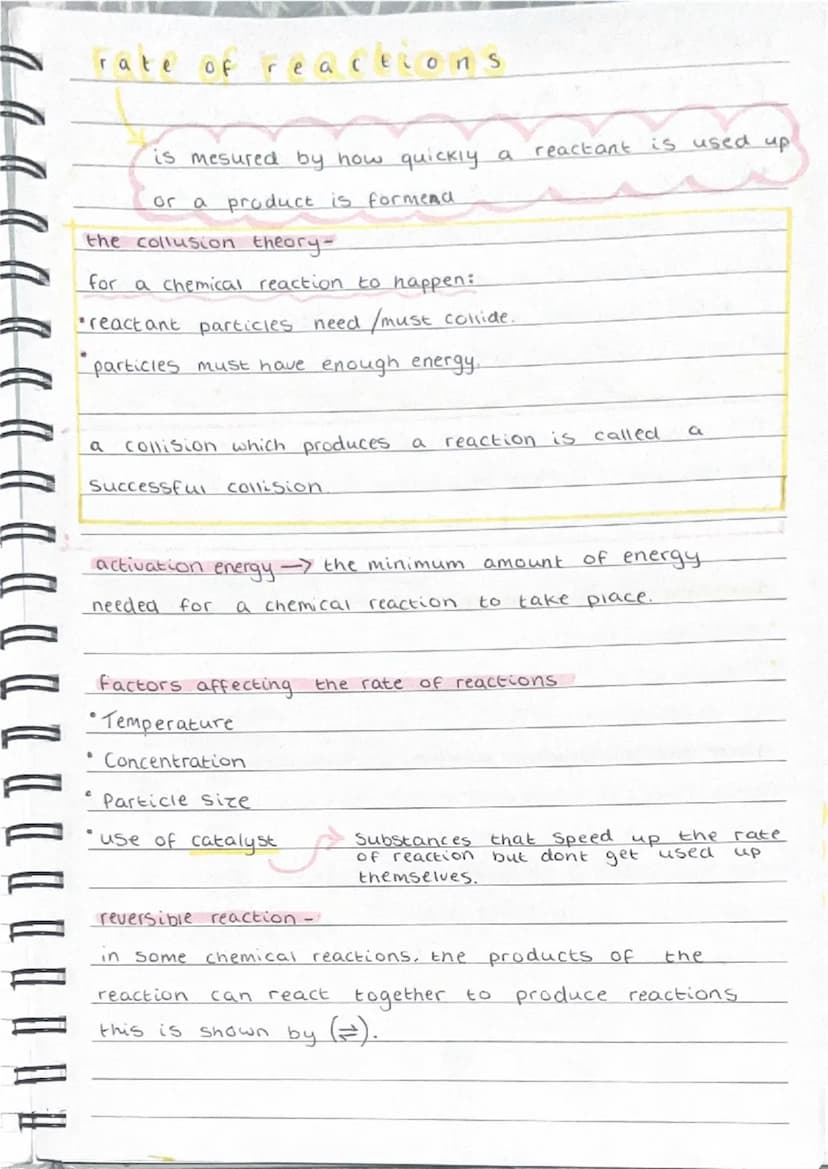 rate of reactions
is mesured by how quickly a reactant is used up
or a product is formend
the collusion theory-
for a chemical reaction to happen:
• reactant particles need /must collide.
• particles must have enough energy.
a collision which produces a reaction is called a
successful collision
activation energy → the minimum amount of energy
needed for a chemical reaction to take place.
factors affecting the rate of reactions
• Temperature
• Concentration
• Particle size
• use of catalyst → substances that speed up the rate
of reaction but dont get used up
themselves.
reversible reaction -
in some chemical reactions, the products of the
reaction can react together to produce reactions
this is shown by (⇌).